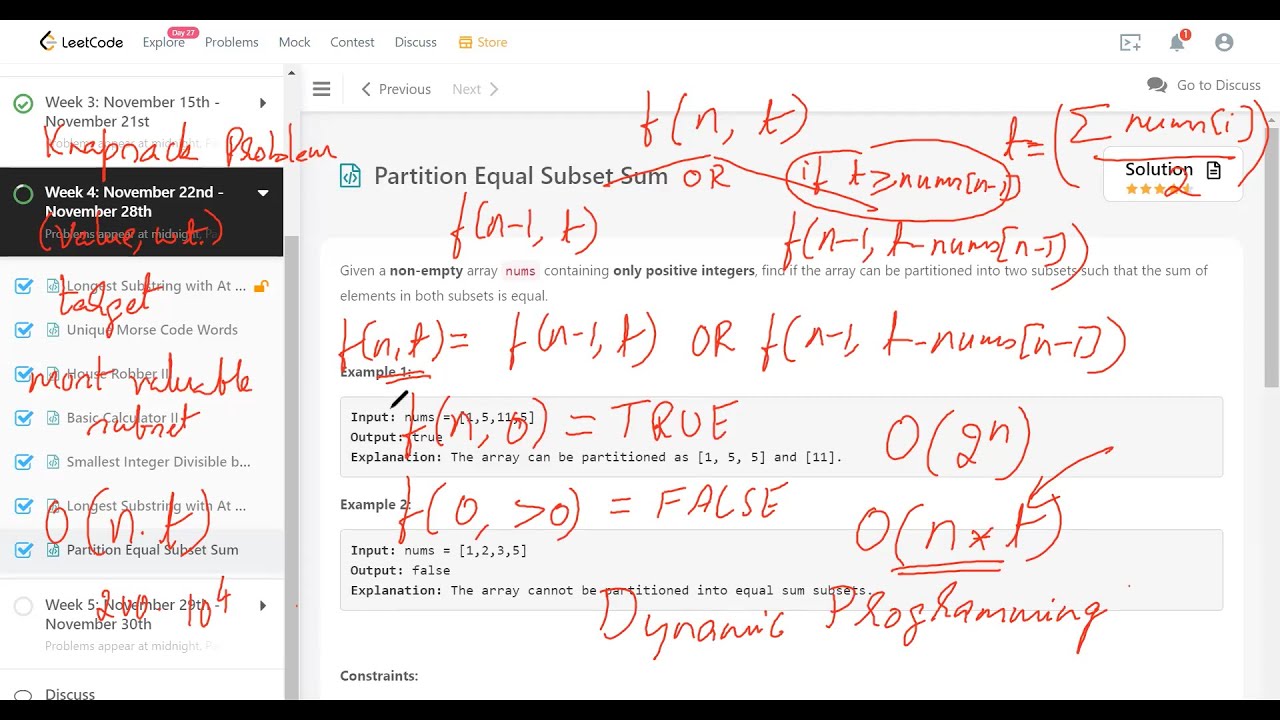 LeetCode
Explore
Day 27
Problems
Mock
Contest
Discuss
Store
1
Week 3: November 15th -
November 21st
Knapsack Problem
Week 4: November 22nd -
November 28th
Problems appear at midnight, Pa
(value, wt.)
Longest Substring with At ...
target
Unique Morse Code Words
House Robber II
most valuable
Basic Calculator II
subset
Smallest Integer Divisible b...
Longest Substring with At ...
O(n.t)
Partition Equal Subset Sum
200 10^4
Week 5: November 29th -
November 30th
Problems appear at midnight, Pa
Discuss
Previous
Next
Go to Discuss
f(n, t)
t = (Σ nums[i] / 2)
Partition Equal Subset Sum
OR
if t ≥ nums[n-1]
Solution
f(n-1, t)
f(n-1, t-nums[n-1])
Given a non-empty array nums containing only positive integers, find if the array can be partitioned into two subsets such that the sum of
elements in both subsets is equal.
f(n,t) = f(n-1, t) OR f(n-1, t-nums[n-1])
Example 1:
Input: nums = [1,5,11,5]
Output: true
Explanation: The array can be partitioned as [1, 5, 5] and [11].
f(n, 0) = TRUE
O(2^n)
Example 2:
f(0, >0) = FALSE
O(n * t)
Input: nums = [1,2,3,5]
Output: false
Explanation: The array cannot be partitioned into equal sum subsets.
Dynamic Programming
Constraints: